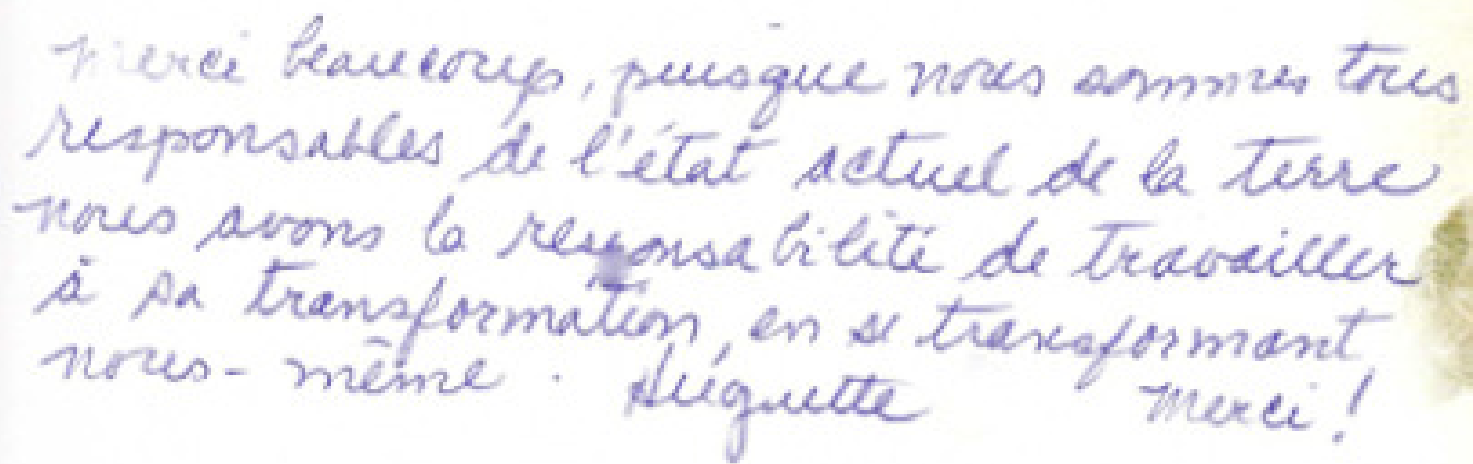 Merci beaucoup, puisque nous sommes tous
responsables de l'état actuel de la terre
nous avons la responsabilité de travailler
à sa transformation, en se transformant
nous-même. Huguette Merci!